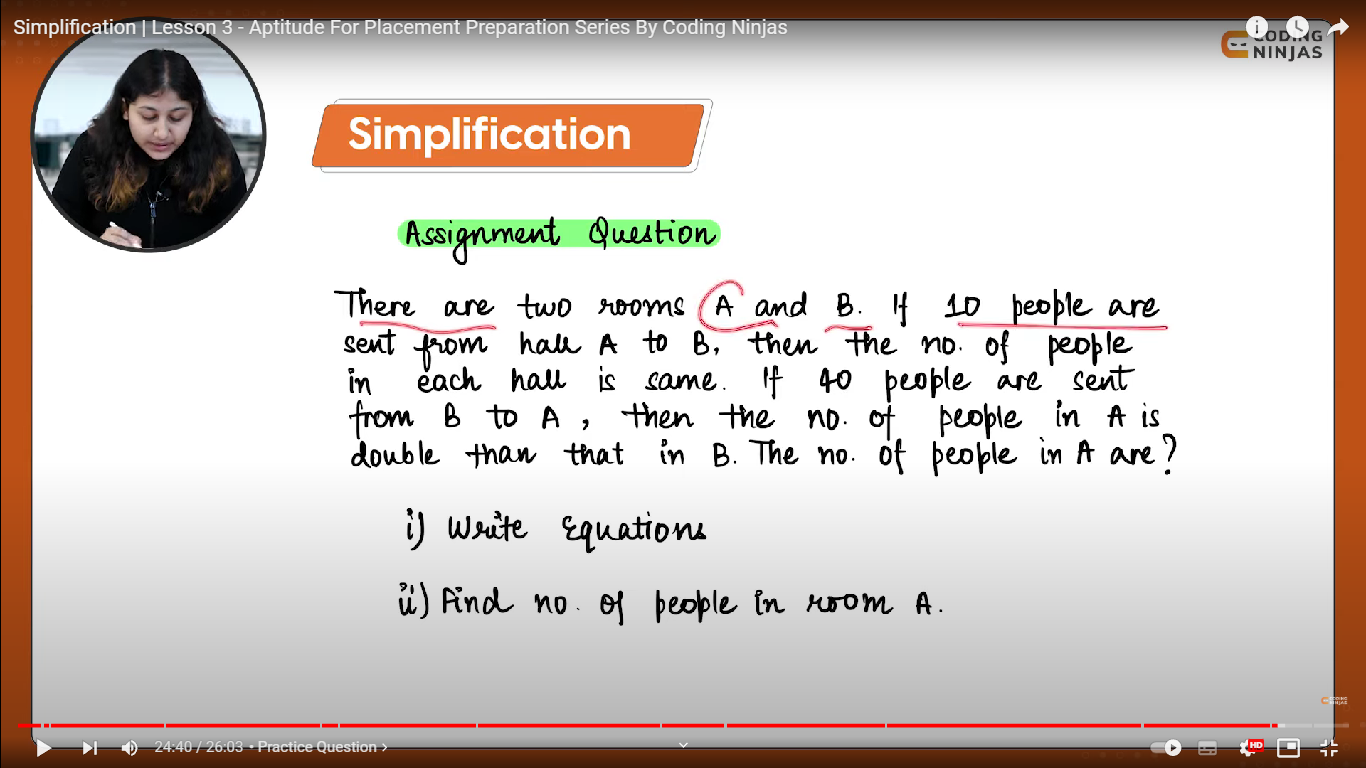 Simplification | Lesson 3 - Aptitude For Placement Preparation Series By Coding Ninjas
CODING
NINJAS
Simplification
Assignment Question
There are two rooms A and B. If 10 people are
sent from hall A to B, then the no. of people
in each hall is same. If 40 people are sent
from B to A, then the no. of people in A is
double than that in B. The no. of people in A are?
i) Write Equations
ii) Find no. of people in room A.
CODING
NINJAS
24:40 / 26:03 • Practice Question >
HD